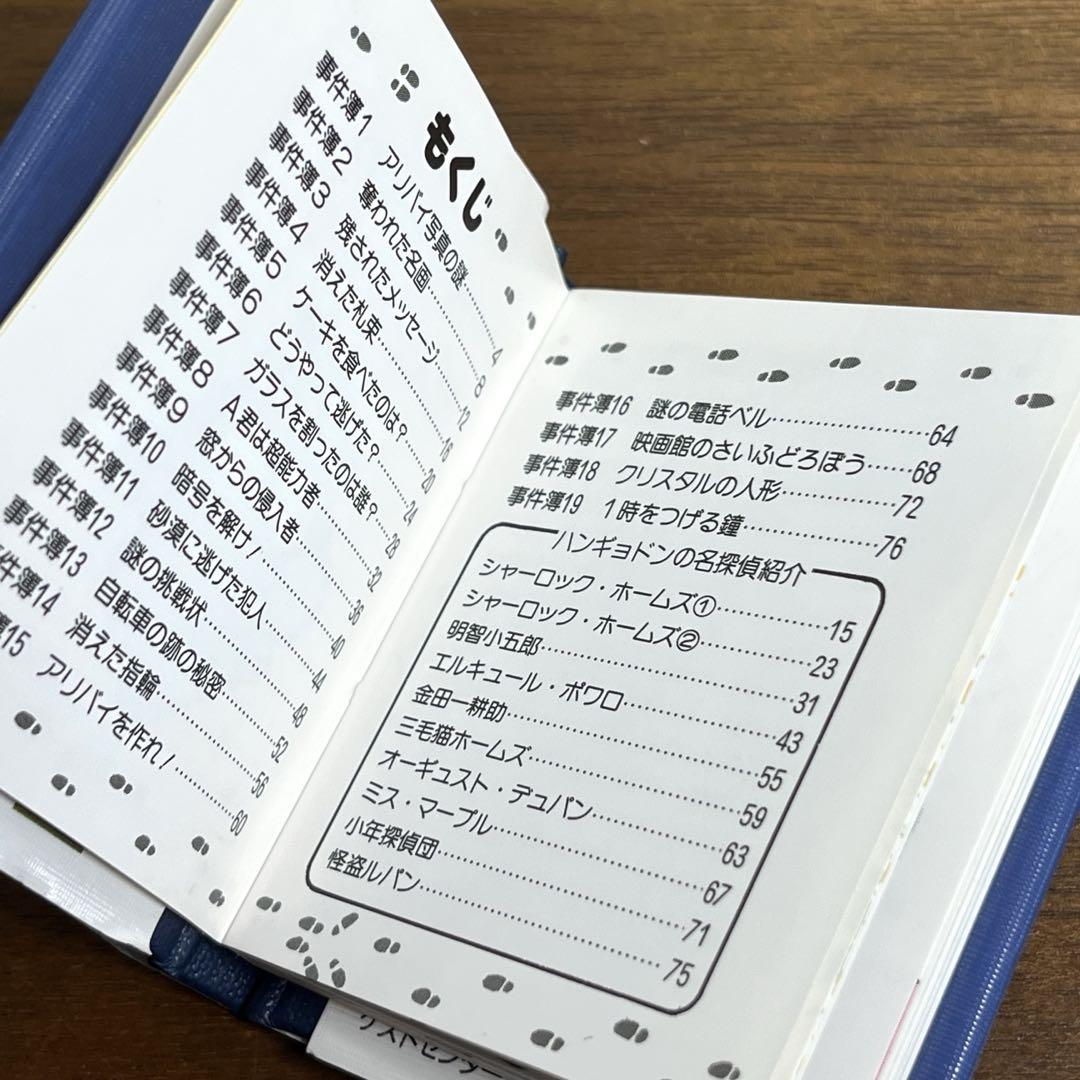 もくじ
事件簿1 アリバイ写真の謎……4
事件簿2 奪われた名画……8
事件簿3 残されたメッセージ……12
事件簿4 消えた札束……16
事件簿5 ケーキを食べたのは?……20
事件簿6 どうやって逃げた?……24
事件簿7 ガラスを割ったのは誰?……28
事件簿8 A君は超能力者……32
事件簿9 窓からの侵入者……36
事件簿10 暗号を解け!……40
事件簿11 砂漠に逃げた犯人……44
事件簿12 謎の挑戦状……48
事件簿13 自転車の跡の秘密……52
事件簿14 消えた指輪……56
簿15 アリバイを作れ!……60
事件簿16 謎の電話ベル……64
事件簿17 映画館のさいふどろぼう……68
事件簿18 クリスタルの人形……72
事件簿19 1時をつげる鐘……76
ハンギョドンの名探偵紹介
シャーロック・ホームズ①……15
シャーロック・ホームズ②……23
明智小五郎……31
エルキュール・ポワロ……43
金田一耕助……55
三毛猫ホームズ……59
オーギュスト・デュパン……63
ミス・マープル……67
少年探偵団……71
怪盗ルパン……75